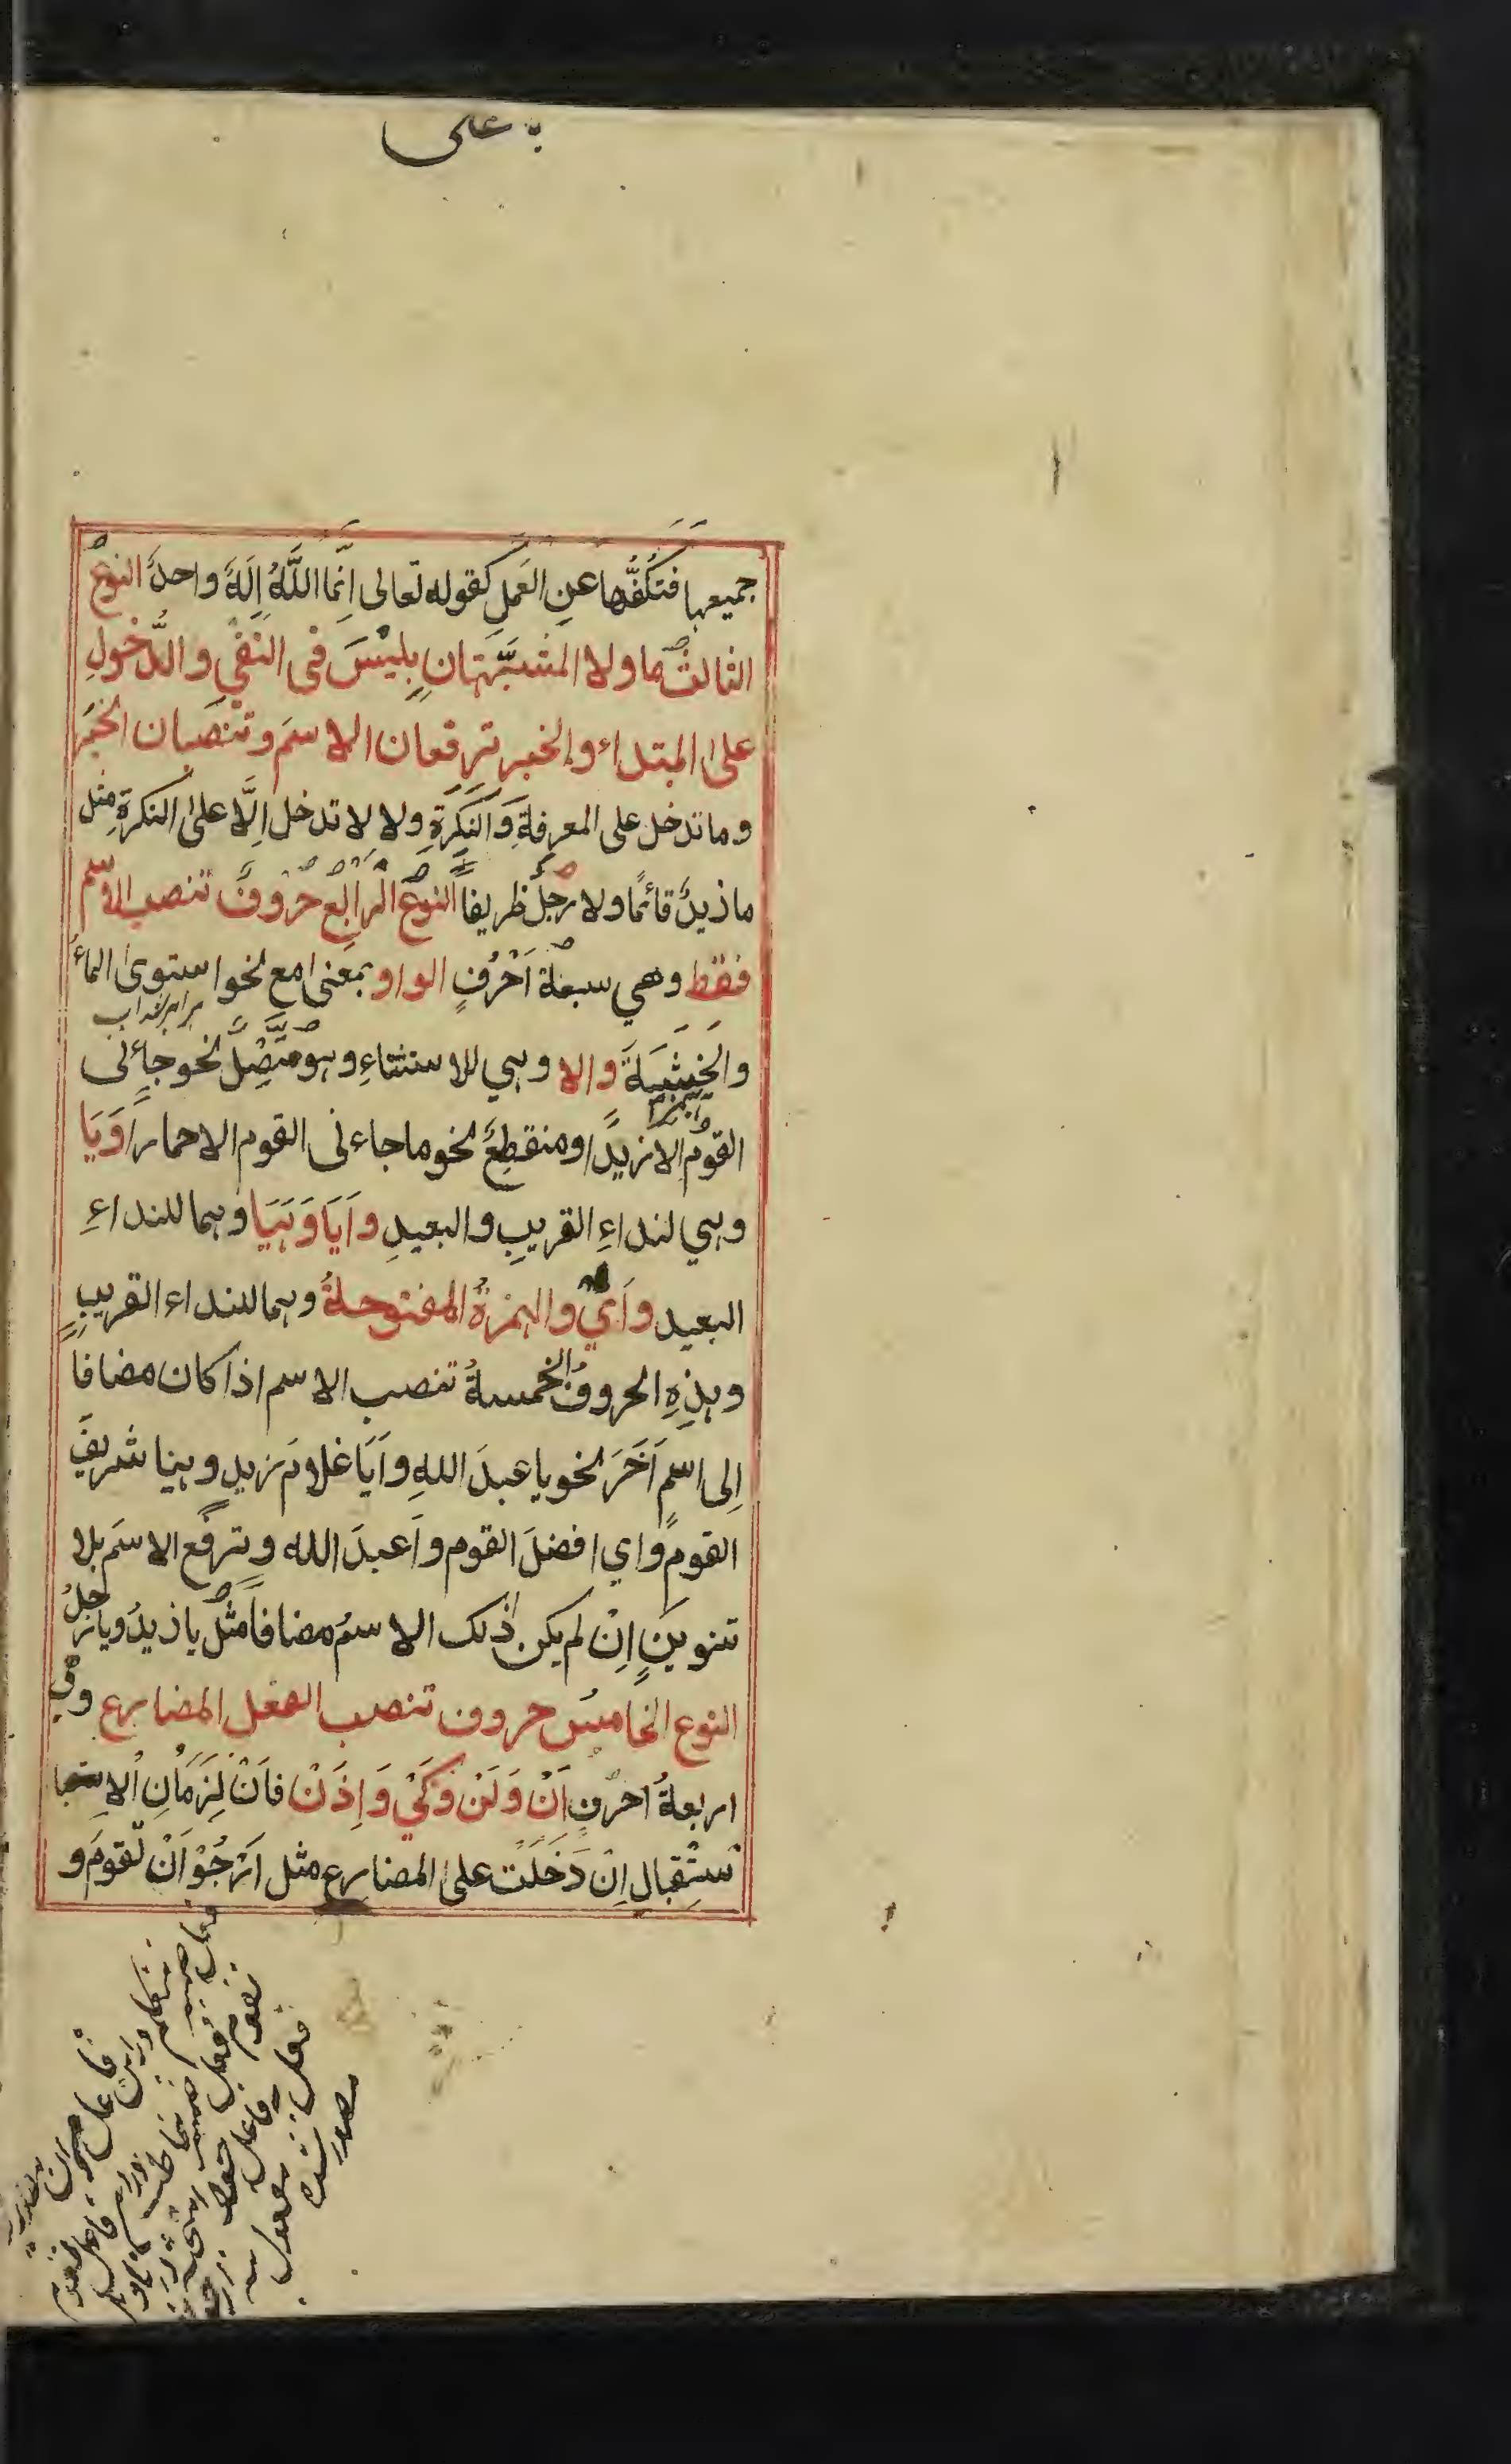 به علی
جميعها فتَكُفُّها عنِ العَمَلِ كقوله تعالى اِنَّمَا اللَّهُ اِلَهٌ واحدٌ النوعُ
الثالثُ ما ولا المشبَّهتانِ بِلَيْسَ فى النفيِ والدُّخولِ
على المبتداء والخبر ترفعان الاسمَ وتنصبان الخبَر
وما تدخل على المعرفةِ وَالنَكِرَةِ ولا لا تدخل اِلَّا على النكرةِ مثل
ما زيدٌ قائمًا ولا رجلٌ ظريفاً النوعُ الرابعُ حروفٌ تنصب الاسم
فقط وهي سبعة اَحْرُفٍ الواو بمعنى امع نحو استوى الماءُ
برابر شد اب
والخشبةَ والا وہي للاستثناءِ وہو متَّصِلٌ نحو جاءنى
القومُ الا زيدًا ومنقطِعٌ نحو ما جاءنى القوم الا حمارًا وَيَا
وہي لنداءِ القريبِ والبعيدِ واَيَا وَہَيَا وہما للنداءِ
البعيد واَيْ والہمزةُ المفتوحةُ وہما للنداء القريبِ
وہذِهِ الحروفُ الخمسةُ تنصب الاسم اذا كان مضافا
اِلى اسمٍ آخَرَ نحو يا عبدَ اللهِ واَيَا غلامَ زيدٍ وہيا شريفَ
القومِ واي افضلَ القوم واَعبدَ الله وترفع الاسمَ بلا
تنوينٍ اِنْ لم يكن ذلك الاسمُ مضافاً مثل يا زيدُ ويا رجلُ
النوع الخامس حروف تنصب الفعل المضارع وهي
اربعةُ احرفٍ اَنْ وَلَنْ وَكَيْ وَاِذَنْ فاَنْ لِزَمَانِ الاِستـ
ـسْتِقبالِ اِنْ دَخَلَتْ على المضارع مثل اَرْجُوْ اَنْ تقومَ و